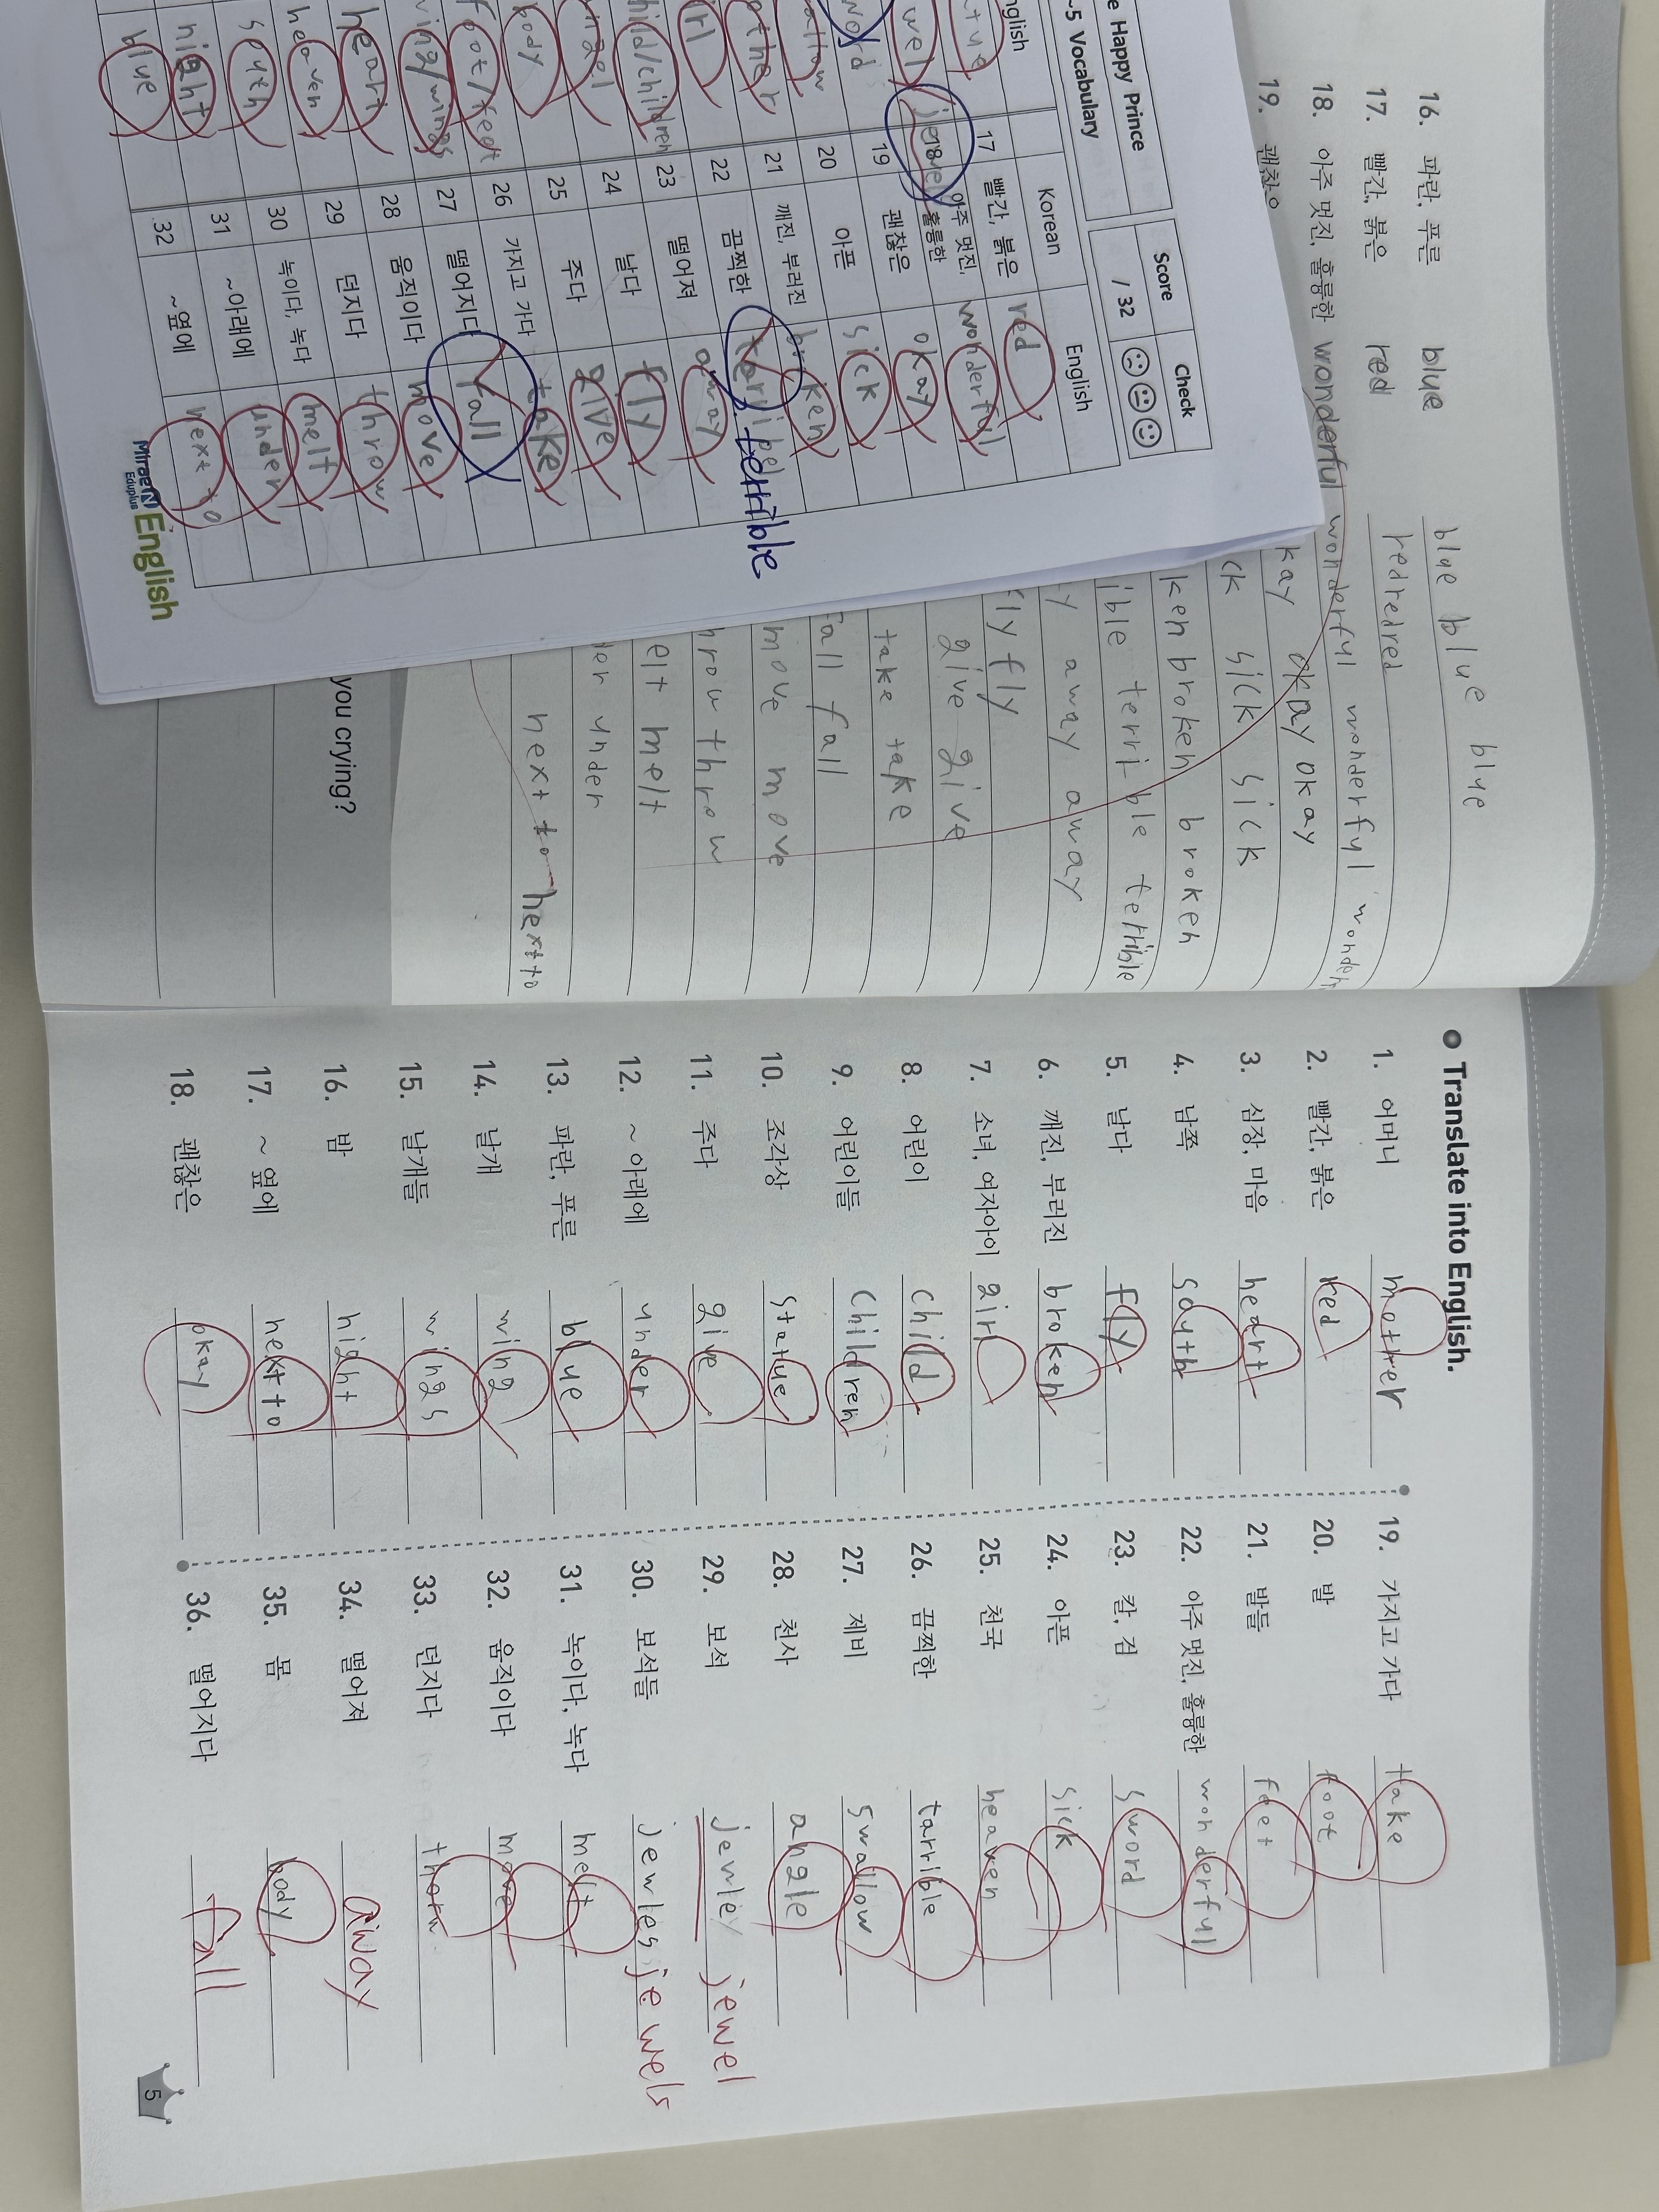 16. 파란, 푸른 blue blue blue blue
17. 빨간, 붉은 red redredred
18. 아주 멋진, 훌륭한 wonderful wonderful wonderful
19. 괜찮은 okay okay
sick sick
broken broken
terrible terrible
away away
fly fly
give give
take take
fall fall
move move
throw
melt
under
next to next to
you crying?
e Happy Prince
Score
Check
~5 Vocabulary
/ 32
English
Korean
English
17 빨간, 붉은 red
jewel 18 아주 멋진, 훌륭한 wonderful
19 괜찮은 okay
20 아픈 sick
21 깨진, 부러진 broken
22 끔찍한 terrible
23 떨어져 away
child/children 24 날다 fly
25 주다 give
body 26 가지고 가다 take
foot/feet 27 떨어지다 fall
wing/wings 28 움직이다 move
heart 29 던지다 throw
heaven 30 녹이다, 녹다 melt
south 31 ~아래에 under
night 32 ~옆에 next to
blue
Mirae N
Eduplus
English
Translate into English.
1. 어머니 mother
2. 빨간, 붉은 red
3. 심장, 마음 heart
4. 남쪽 south
5. 날다 fly
6. 깨진, 부러진 broken
7. 소녀, 여자아이 girl
8. 어린이 child
9. 어린이들 children
10. 조각상 statue
11. 주다 give
12. ~ 아래에 under
13. 파란, 푸른 blue
14. 날개 wing
15. 날개들 wings
16. 밤 night
17. ~ 옆에 next to
18. 괜찮은 okay
19. 가지고 가다 take
20. 발 foot
21. 발들 feet
22. 아주 멋진, 훌륭한 wonderful
23. 칼, 검 sword
24. 아픈 sick
25. 천국 heaven
26. 끔찍한 tarrible
27. 제비 swallow
28. 천사 angle
29. 보석 jewley jewel
30. 보석들 jewles jewels
31. 녹이다, 녹다 melt
32. 움직이다 move
33. 던지다
34. 떨어져 away
35. 몸 body
36. 떨어지다 fall
5